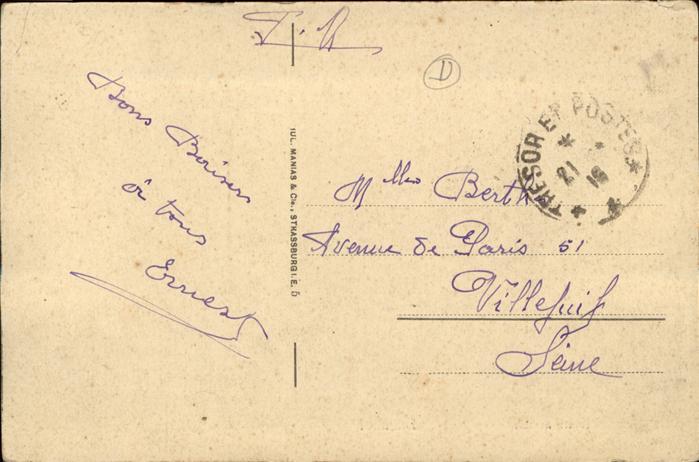 F. M
D
Bons Baisers
à tous
Ernest
JUL. MANIAS & Cie., STRASSBURG I. E. D
TRÉSOR ET POSTES
21
Mlle Berthe
Avenue de Paris 51
Villejuif
Seine